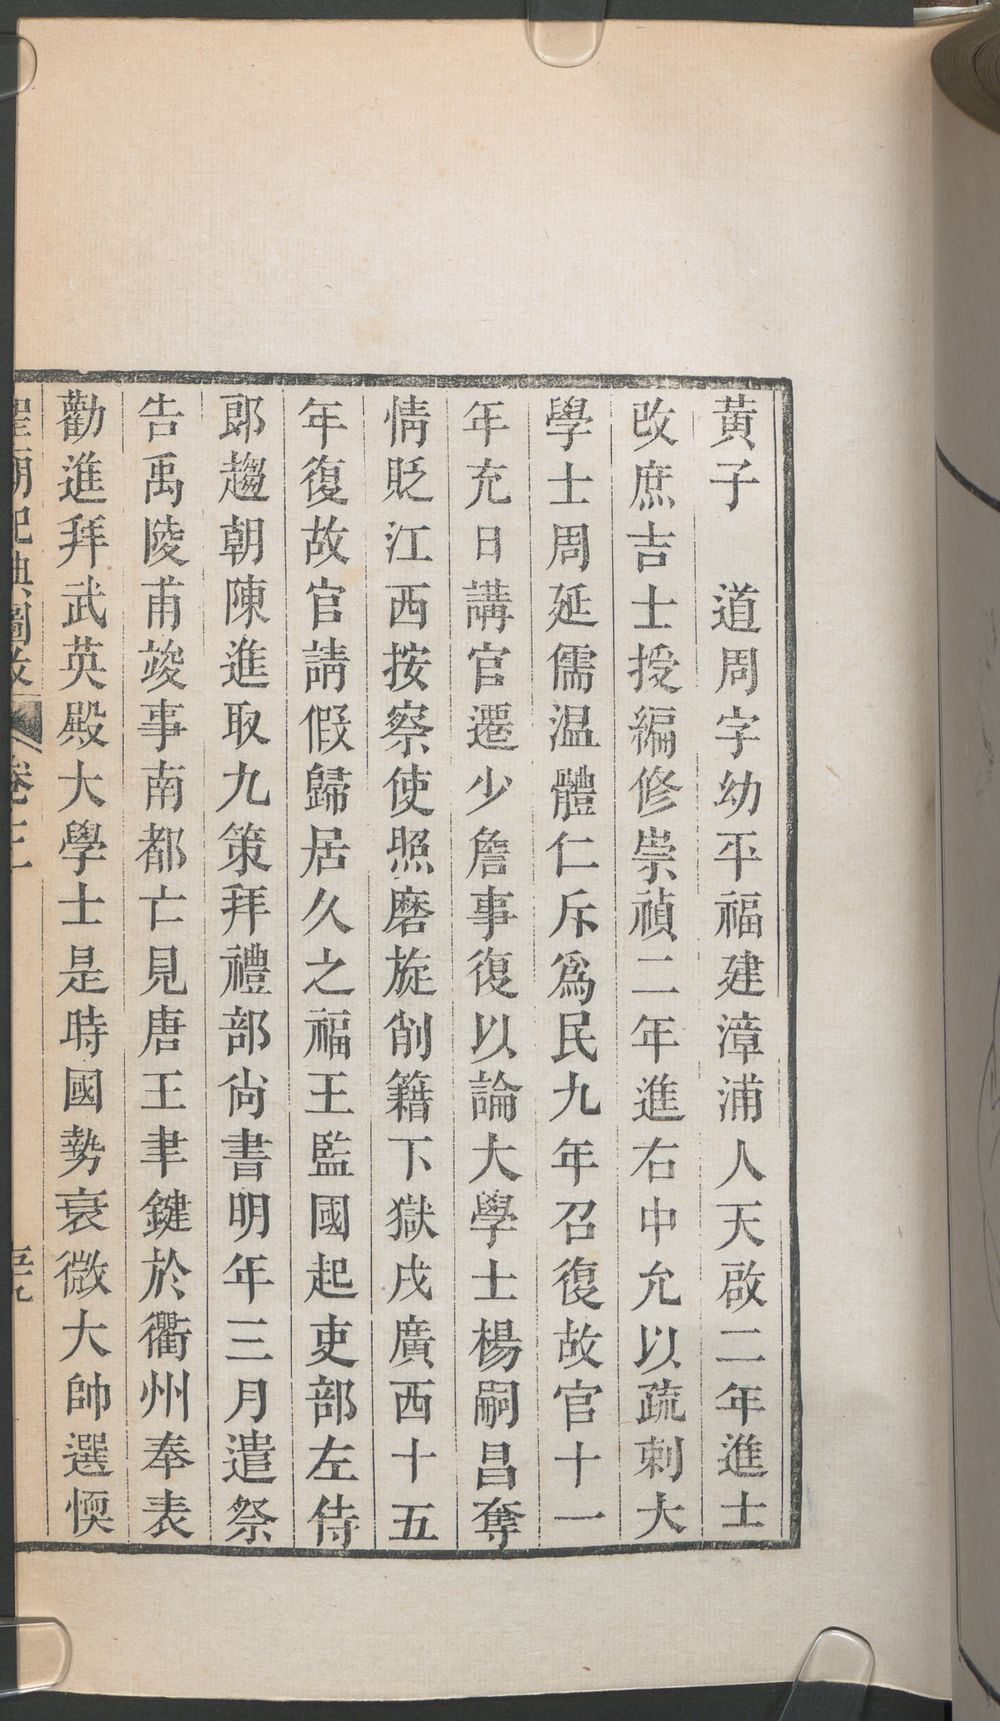 黃子　道周字幼平福建漳浦人天啟二年進士
改庶吉士授編修崇禎二年進右中允以疏刺大
學士周延儒温體仁斥爲民九年召復故官十一
年充日講官遷少詹事復以論大學士楊嗣昌奪
情貶江西按察使照磨旋削籍下獄戍廣西十五
年復故官請假歸居久之福王監國起吏部左侍
郎趨朝陳進取九策拜禮部尚書明年三月遣祭
告禹陵甫竣事南都亡見唐王聿鍵於衢州奉表
勸進拜武英殿大學士是時國勢衰微大帥選愞
聖廟祀典圖攷 卷三